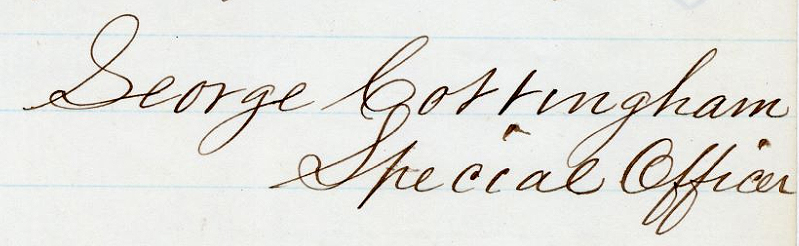 George Cottingham
Special Officer